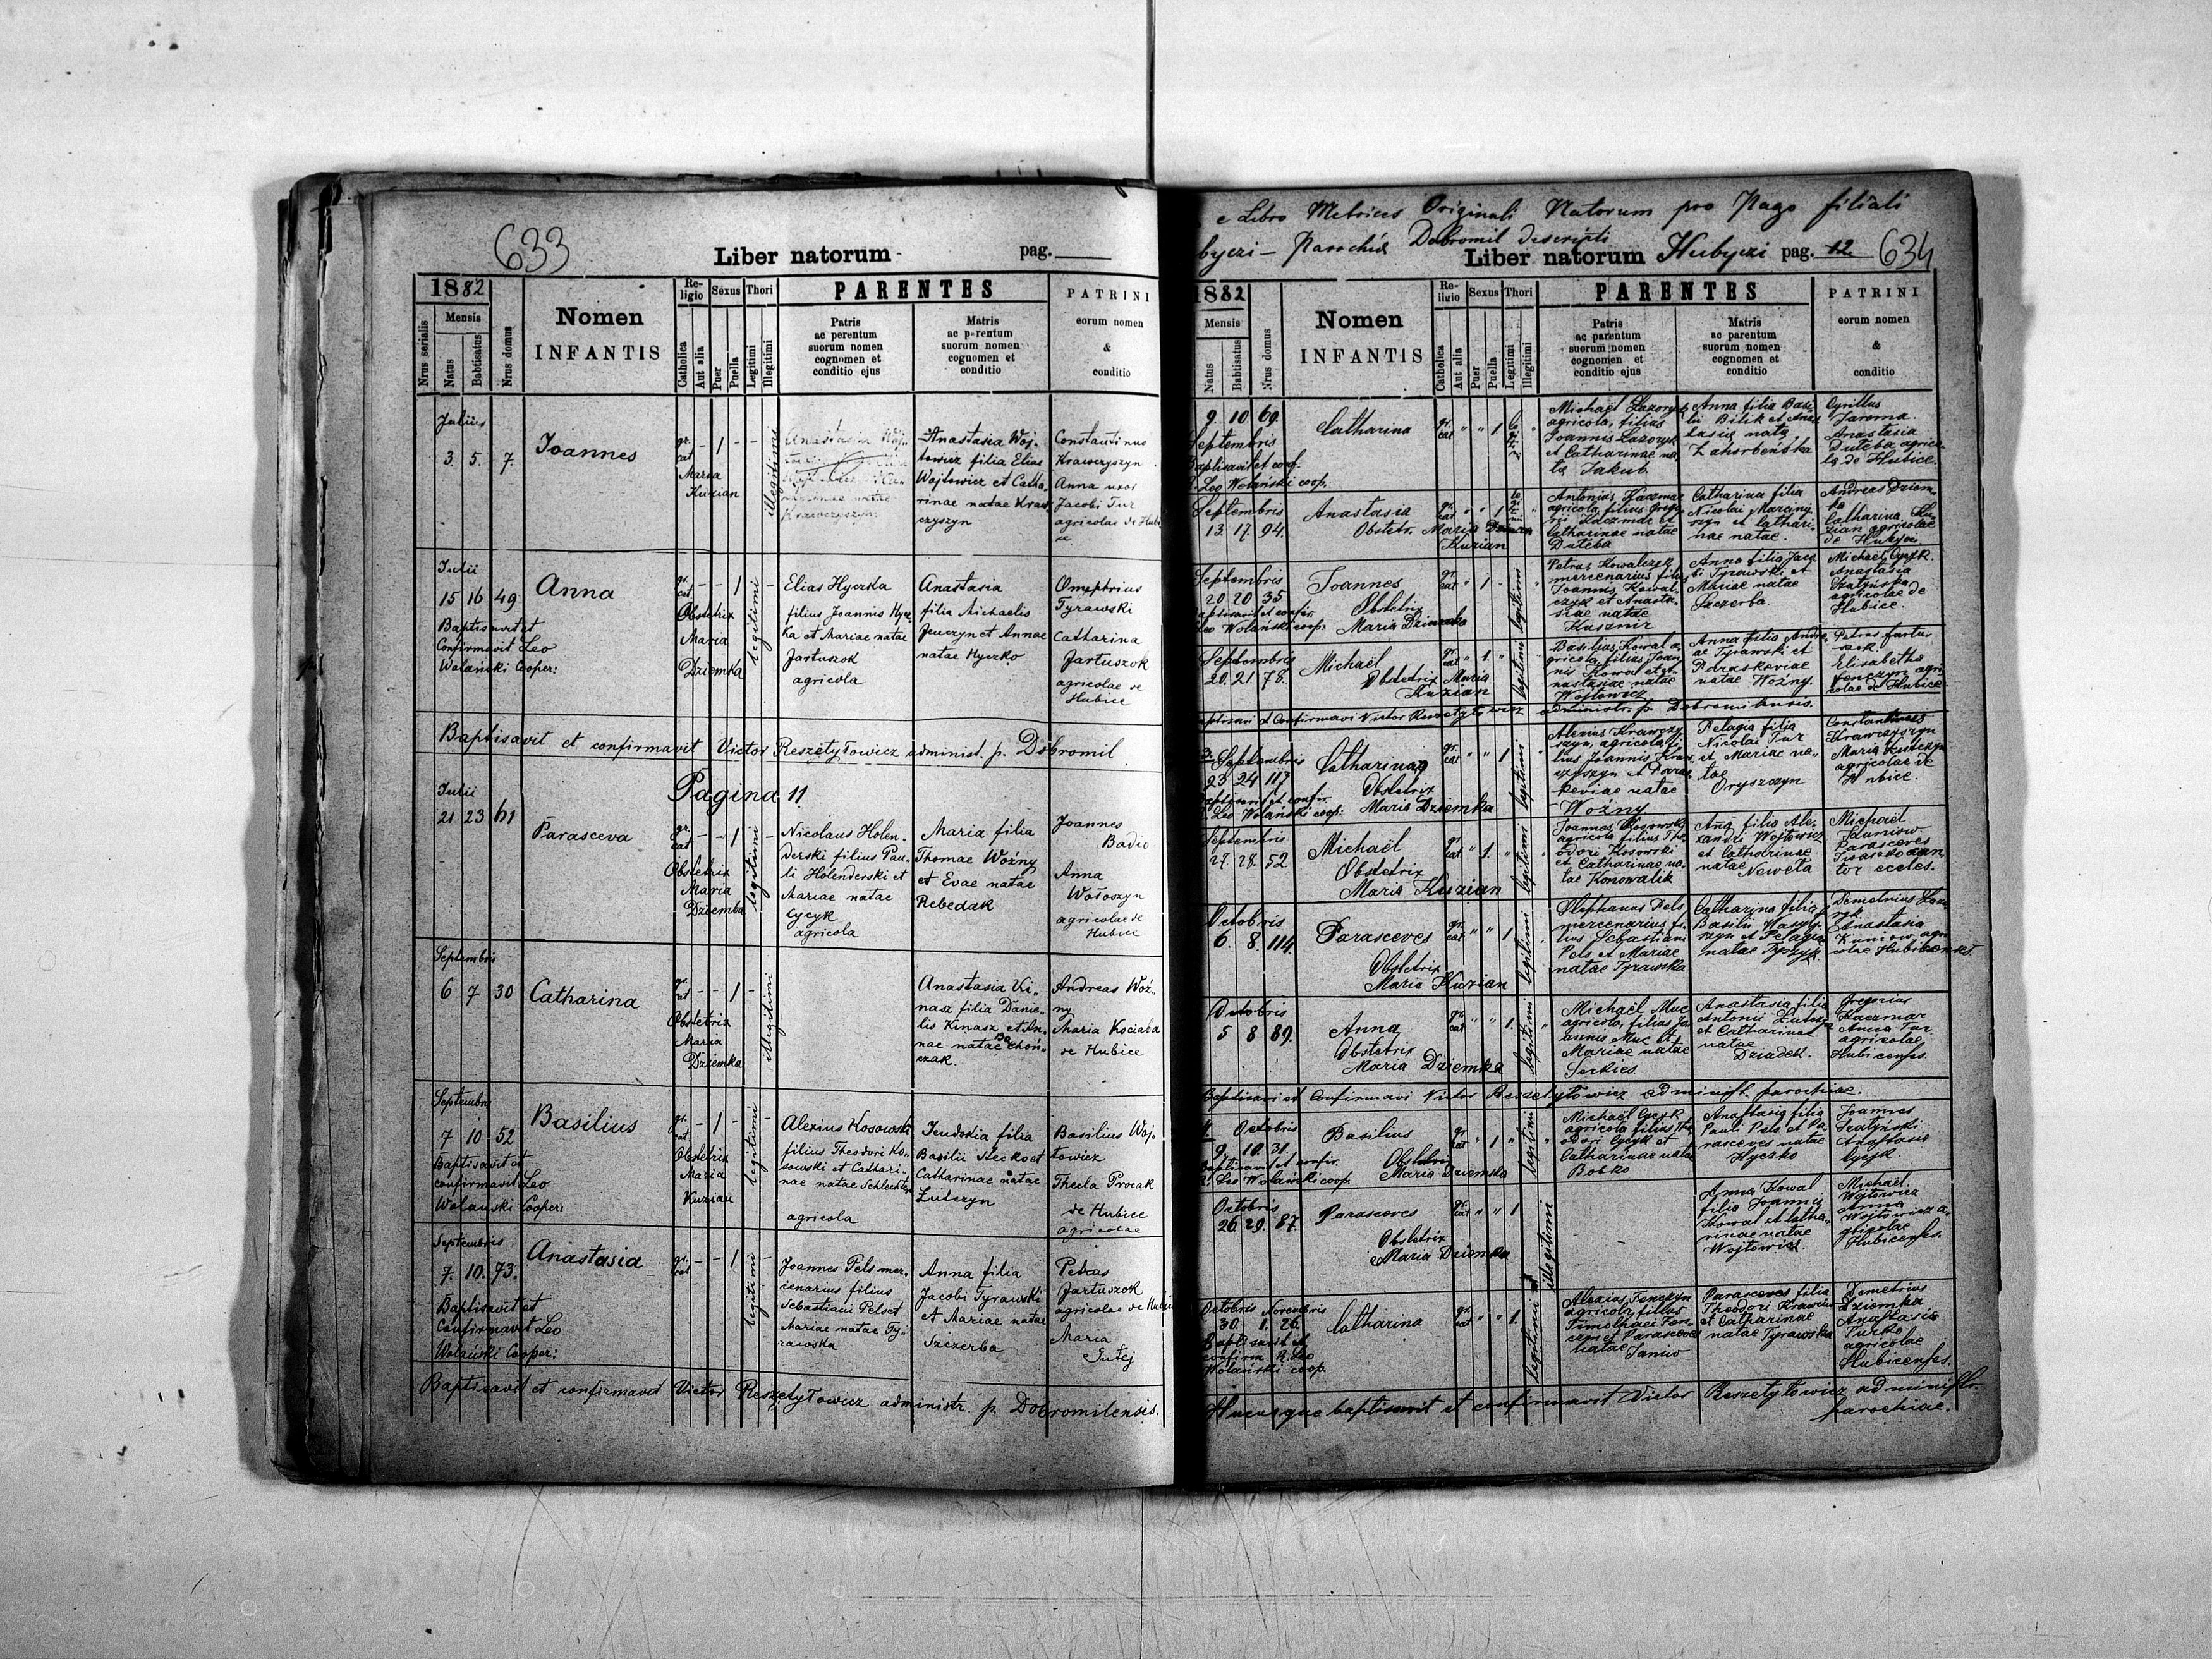 633
Liber natorum pag.
1882
Nrus serialis
Mensis
Natus
Babtisatus
Nrus domus
Nomen
INFANTIS
Religio
Catholica
Aut alia
Sexus
Puer
Puella
Thori
Legitimi
Illegitimi
PARENTES
Patris
ac perentum
suorum nomen
cognomen et
conditio ejus
Matris
ac parentum
suorum nomen
cognomen et
conditio
PATRINI
eorum nomen
&
conditio
Julius
3. 5. 7.
Joannes
gr. cat - 1 - -
Maria
Kuzian
illegitimi
Anastasia Woj-
towicz filia Elias
Wojtowicz et Catha-
rinae natae Kraw
czyszyn
Constantinus
Krawczyszyn
Anna uxor
Jacobi Tur
agricolae de Hubi
ce
Julii
15 16 49
Baptisavit et
Confirmavit Leo
Wolański Cooper:
Anna
gr. cat. - - 1 -
Obstetrix
Maria
Dziemka
legitimi
Elias Hyczka
filius Joannis Hycz
ka et Mariae natae
Jartuszok
agricola
Anastasia
filia Michaelis
Jenczyn et Annae
natae Hyczko
Dmeptrius
Tyrawski
Catharina
Jartuszok
agricolae de
Hubice
Baptisavit et confirmavit Victor Reszetyłowicz administ. p. Dobromil
Pagina 11
Julii
21 23 61
Parasceva
gr. cat - - 1 -
Obstetrix
Maria
Dziemba
legitimi
Nicolaus Holen-
derski filius Pau-
li Holenderski et
Mariae natae
Cycyk
agricola
Maria filia
Thomae Woźny
et Evae natae
Rebedak
Joannes
Badio
Anna
Wołoszyn
agricolae de
Hubice
Septembris
6 7 30
Catharina
gr. cat - - 1 -
Obstetrix
Maria
Dziemka
illegitimi
Anastasia Ki-
nasz filia Danie-
lis Kinasz et An-
nae natae Bochoń-
czak.
Andreas Woź-
ny
Maria Kociaba
de Hubice
Septembri
7 10 52
Baptisavit et
confirmavit Leo
Wolanski Cooper:
Basilius
gr. cat - 1 - -
Obstetrix
Maria
Kuzian
legitimi
Alexius Kosowski
filius Theodori Ko-
sowski et Cathari-
nae natae Schlechta
agricola
Jeudokia filia
Basilii Steckoet
Catharinae natae
Łutczyn
Basilius Woj-
towicz
Thecla Procak
de Hubice
agricolae
Septembris
7. 10. 73.
Baptisavit et
Confirmavit Leo
Wolański Cooper:
Anastasia
gr. cat - - 1 -
legitimi
Joannes Pels mer-
cenarius filius
Sebastiani Pels et
Mariae natae Ty-
rawska
Anna filia
Jacobi Tyrawski
et Mariae natae
Szczerba
Petrus
Jartuszok
agricolae de Hubice
Maria
Tutej
Baptisavit et confirmavit Victor Reszetyłowicz administr. p. Dobromilensis.
e Libro Metrices Originali Natorum pro Pago filiali
byczi - Parochiæ Dobromil descripti
Liber natorum Hubyczi pag. 12. 634
1882
Mensis
Natus
Babtisatus
Nrus domus
Nomen
INFANTIS
Religio
Catholica
Aut alia
Sexus
Puer
Puella
Thori
Legitimi
Illegitimi
PARENTES
Patris
ac perentum
suorum nomen
cognomen et
conditio ejus
Matris
ac parentum
suorum nomen
cognomen et
conditio
PATRINI
eorum nomen
&
conditio
9. 10. 69.
Septembris
Baptisavit et conf.
Leo Wolański coop.
Catharina
gr. cat " " 1
Michaël Lazoryk
agricola, filius
Joannis Lazoryk
et Catharinae na-
ta Jakub
Anna filia Basi-
lii Bilik et Anas
tasiæ natą
Zahorbeńska
Cyrillus
Jaroma.
Anastasia
Duteba agrico
la de Hubice.
Septembris
13. 17. 94.
Anastasia
Obstetr. Maria
Kuzian
gr. cat " " 1
Antonius Kaczmar
agricola, filius Grego
rii Kaczmar et
Catharinae natae
Duteba
Catharina filia
Nicolai Marciny
szyn et Cathari-
nae natae.
Andreas Dziem-
ka
Catharina Ku-
zian agricolae
de Hubice
Septembris
20 20 35
Baptisavit et confir.
Leo Wolański coop:
Joannes
Obstetrix
Maria Dziemka
gr. cat " 1 "
legitimi
Petrus Kowalczyk
mercenarius filius
Joannis Kowal-
czyk et Anasta-
siae natae
Kusznir
Anna filia Jaco
bi Tyrawski et
Mariae natae
Szczerba.
Michaël Cycyk.
Anastasia
Szatyńska
agricolae de
Hubice.
Septembris
20. 21. 78.
Michaël
Obstetrix Maria
Kuzian
gr. cat " 1. "
legitimi
Basilius Kowal a-
gricola, filius Joan
nis Kowal et A-
nastasiae natae
Wojtowicz
Anna filia Andre
ae Tyrawski et
Paraskeviae
natae Woźny.
Petrus Jartu-
szok
Elisabetha
Jenczyn agri-
colae de Hubice
Baptisavi et Confirmavi Victor Reszetyłowicz administr. p. Dobromilensis.
Septembris
23. 24 117
Baptisavit et confir.
Leo Wolański coop:
Catharina
Obstetrix
Maria Dziemka
gr. cat " " 1
legitimi
Alexius Krawczy-
szyn, agricola, fi-
lius Joannis Kraw
czyszyn et Paras
keviae natae
Woźny
Pelagia filia
Nicolai Tur
et Mariae na-
tae
Oryszczyn
Constantinus
Krawczyszyn
Maria Lutczyn
agricolae de
Hubice.
Septembris
27. 28. 52
Michaël
Obstetrix
Maria Kuzian
gr. cat " 1. "
legitimi
Joannes Kosowski
agricola filius The
odori Kosowski
et Catharinae na-
tae Konowalik
Ana filia Ale-
xandri Wojtowicz
et Catharinae
natae Neweta
Michaël
Kuniow
Parasceves
Iwasecko can
tor eccles.
Octobris
6. 8. 114.
Parasceves
Obstetrix
Maria Kuzian
gr. cat " " 1
legitimi
Stephanus Pels
mercenarius fi-
lius Sebastiani
Pels et Mariae
natae Tyrawska
Catharina filia
Basilii Wasyly-
szyn et Pelagia
natae Tyszyk.
Demetrius Lazo
ryk
Anastasia
Kuniow agri
colae Hubicenses.
Octobris
5 8 89.
Anna
Obstetrix
Maria Dziemka
gr. cat " " 1.
legitimi
Michaël Muc
agricola, filius Jo-
annis Muc et
Mariae natae
Serkies
Anastasia filia
Antonii Lutczyn
et Catharinae
natae
Dziadek.
Gregorius
Kaczmar
Anna Tur
agricolae
Hubicenses.
Baptisavi et Confirmavi Victor Reszetyłowicz administ. parochiae.
Octobris
9. 10. 31.
Baptisavit et confir.
R. Leo Wolański coop.
Basilius
Obstetrix
Maria Dziemka
gr. cat " 1 "
legitimi
Michaël Cycyk
agricola filius The
odori Cycyk et
Catharinae natae
Bobko
Anastasia filia
Pauli Pels et Pa-
rasceves natae
Hyczko
Joannes
Szatyński
Anastasia
Cycyk.
Octobris
26. 29. 87.
Parasceves
Obstetrix
Maria Dziemka
gr. cat " " 1
illegitimi
Anna Kowal
filia Joannis
Kowal et Catha-
rinae natae
Wojtowicz.
Michaël
Wojtowicz
Anna
Wojtowicz a-
gricolae
Hubicenses.
Octobris Novembris
30. 1. 26.
Baptisavit et
confirm R. Leo
Wolański coop.
Catharina
gr. cat " " 1.
legitimi
Alexius Jenczyn
agricola, filius
Timothaei Jen-
czyn et Parasceves
natae Janiw
Parasceves filia
Theodori Krawciw
et Catharinae
natae Tyrawska
Demetrius
Dziemka
Anastasia
Turko
agricolae
Hubicenses.
Hucusque baptisavit et confirmavit Victor Reszetyłowicz administr.
parochiae.